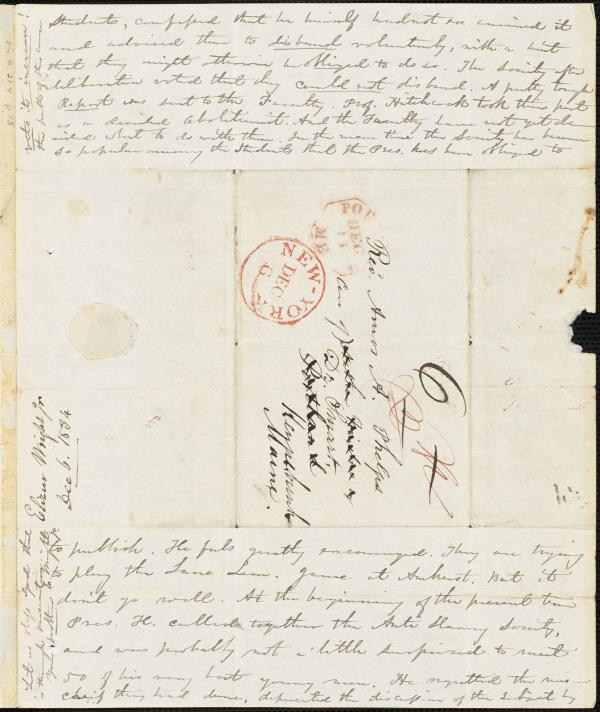 to publish. He feels greatly encouraged. They are trying
to play the Lane Sem. game at Amherst. But it
don't go well. At the beginning of the present term
Pres. H. called together the Anti Slavery Society,
and was probably not a little surprised to meet
50 of his very best young men. He regretted the mis-
chief they had done, deprecated the discussion of the subject by
students, confessed that he himself had not examined it
and advised them to disband voluntarily, with a hint
that they might otherwise be obliged to do so. The Society after
deliberation voted that they could not disband. A pretty tough
Report was sent to the Faculty. Prof. Hitchcock took this part
as a decided Abolitionist. And the Faculty have not yet de-
cided what to do with them. In the mean time the Society has become
so popular among the Students that the Pres. has been obliged to
NEW-YORK
DEC
6
DEC
ME
Rev. Amos A. Phelps
Care of
Dr. Smart
Portland
Kennebunk
Maine.
6
Elizur Wright Jr.
Dec 6. 1834